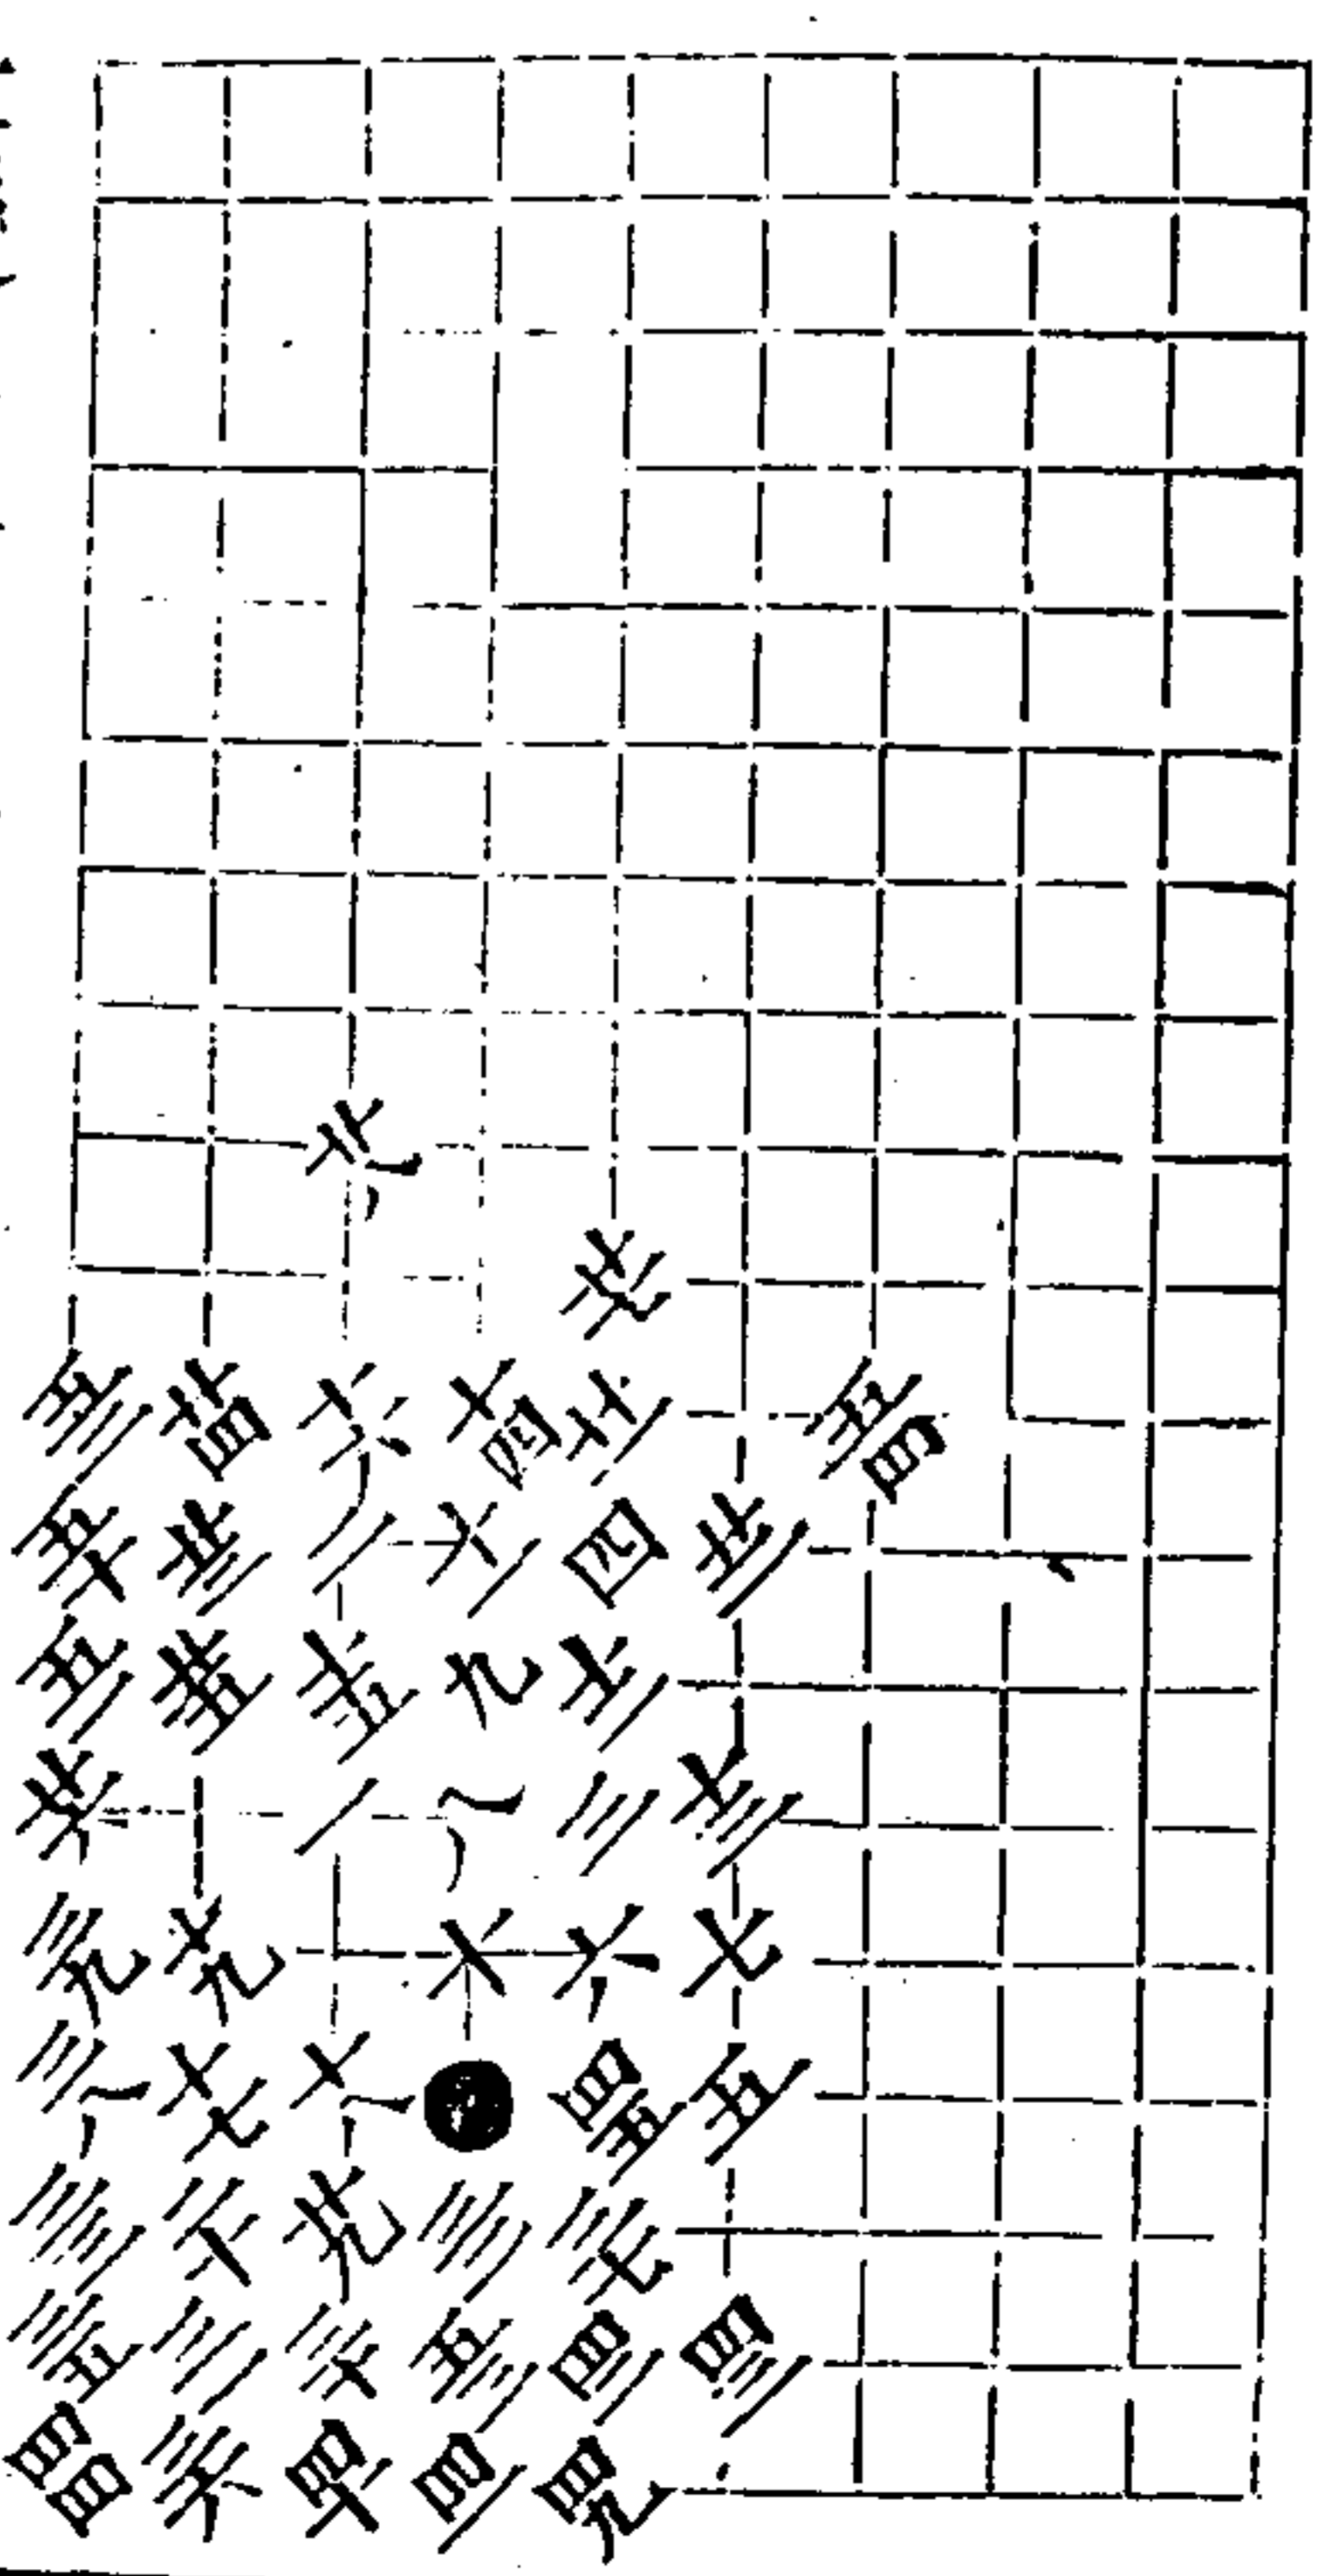 廿八
廿七
五三 廿四 十六 十四 廿一 五四
五十 廿三 二 十一 四 廿二
五二 廿五 十五 九 十二
廿六 一 八 三 十三
三九 十九 十 六 七
三八 十七 十八 四五 五
三三 二十 廿九 三七
三五 三十 四二 四三
四四 三六 四十 四一 四九